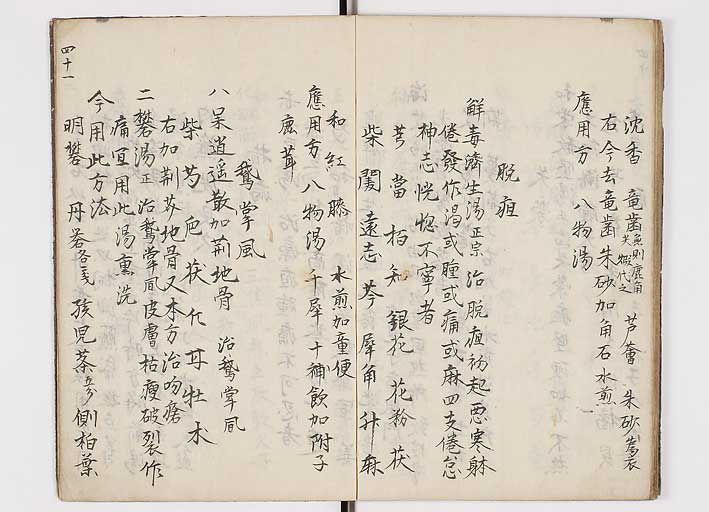 沈香 竜歯魚則鹿角尖煆代之 芦薈 朱砂為衣
右今去竜歯朱砂加角石水煎
應用方 八物湯
脱疽
解毒濟生湯正宗 治脱疽初起悪寒躰
倦發作渇或腫或痛或麻四支倦怠
神志恍惚不寧者
芎 當 栢 知 銀花 花粉 茯
柴 麦 遠志 芩 犀角 升麻
和 紅 膝 水煎加童便
應用方 八物湯 千犀 十補飲加附子
鹿茸
鵞掌風
八 呆逍遥散加荆地骨 治鵞掌風
柴 芍 皀 茯 仁 耳 牡 木
右加荆芥地骨又本方治吻瘡
二礬湯正 治鵞掌風皮膚枯痩破裂作
痛宜用此湯熏洗
今用此方法
明礬 丹礬各 孩児茶 側柏葉
四十一